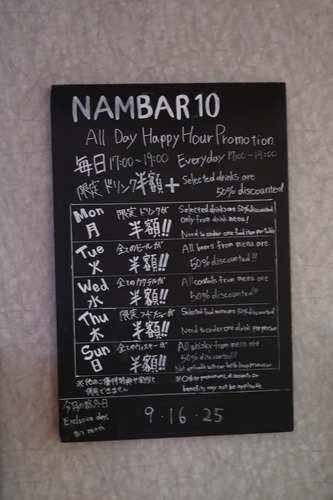 NAMBAR10
All Day Happy Hour Promotion
毎日17:00~19:00 Everyday 17:00~19:00
限定ドリンク半額+ Selected drinks are 50% discounted
Mon 月 限定ドリンクが 半額!! Selected drinks are 50% discounted
Only from drink menu!
Need to order one food item per table
Tue 火 全てのビールが 半額!! All beers from menu are
50% discounted!!!
Wed 水 全てのカクテルが 半額!! All cocktails from menu are
50% discounted!!!
Thu 木 限定フードメニューが 半額!! Selected food menu are 50% discounted
Need to order one drink per person
Sun 日 全てのウィスキーが 半額!! All whisky from menu are
50% discounted!!
Not applicable with our
※他のご優待特典や割引と
併用できません
※Other promotions, discounts or
benefits may not be applicable
今月の除外日
Exclusive day
this month
9.16.25